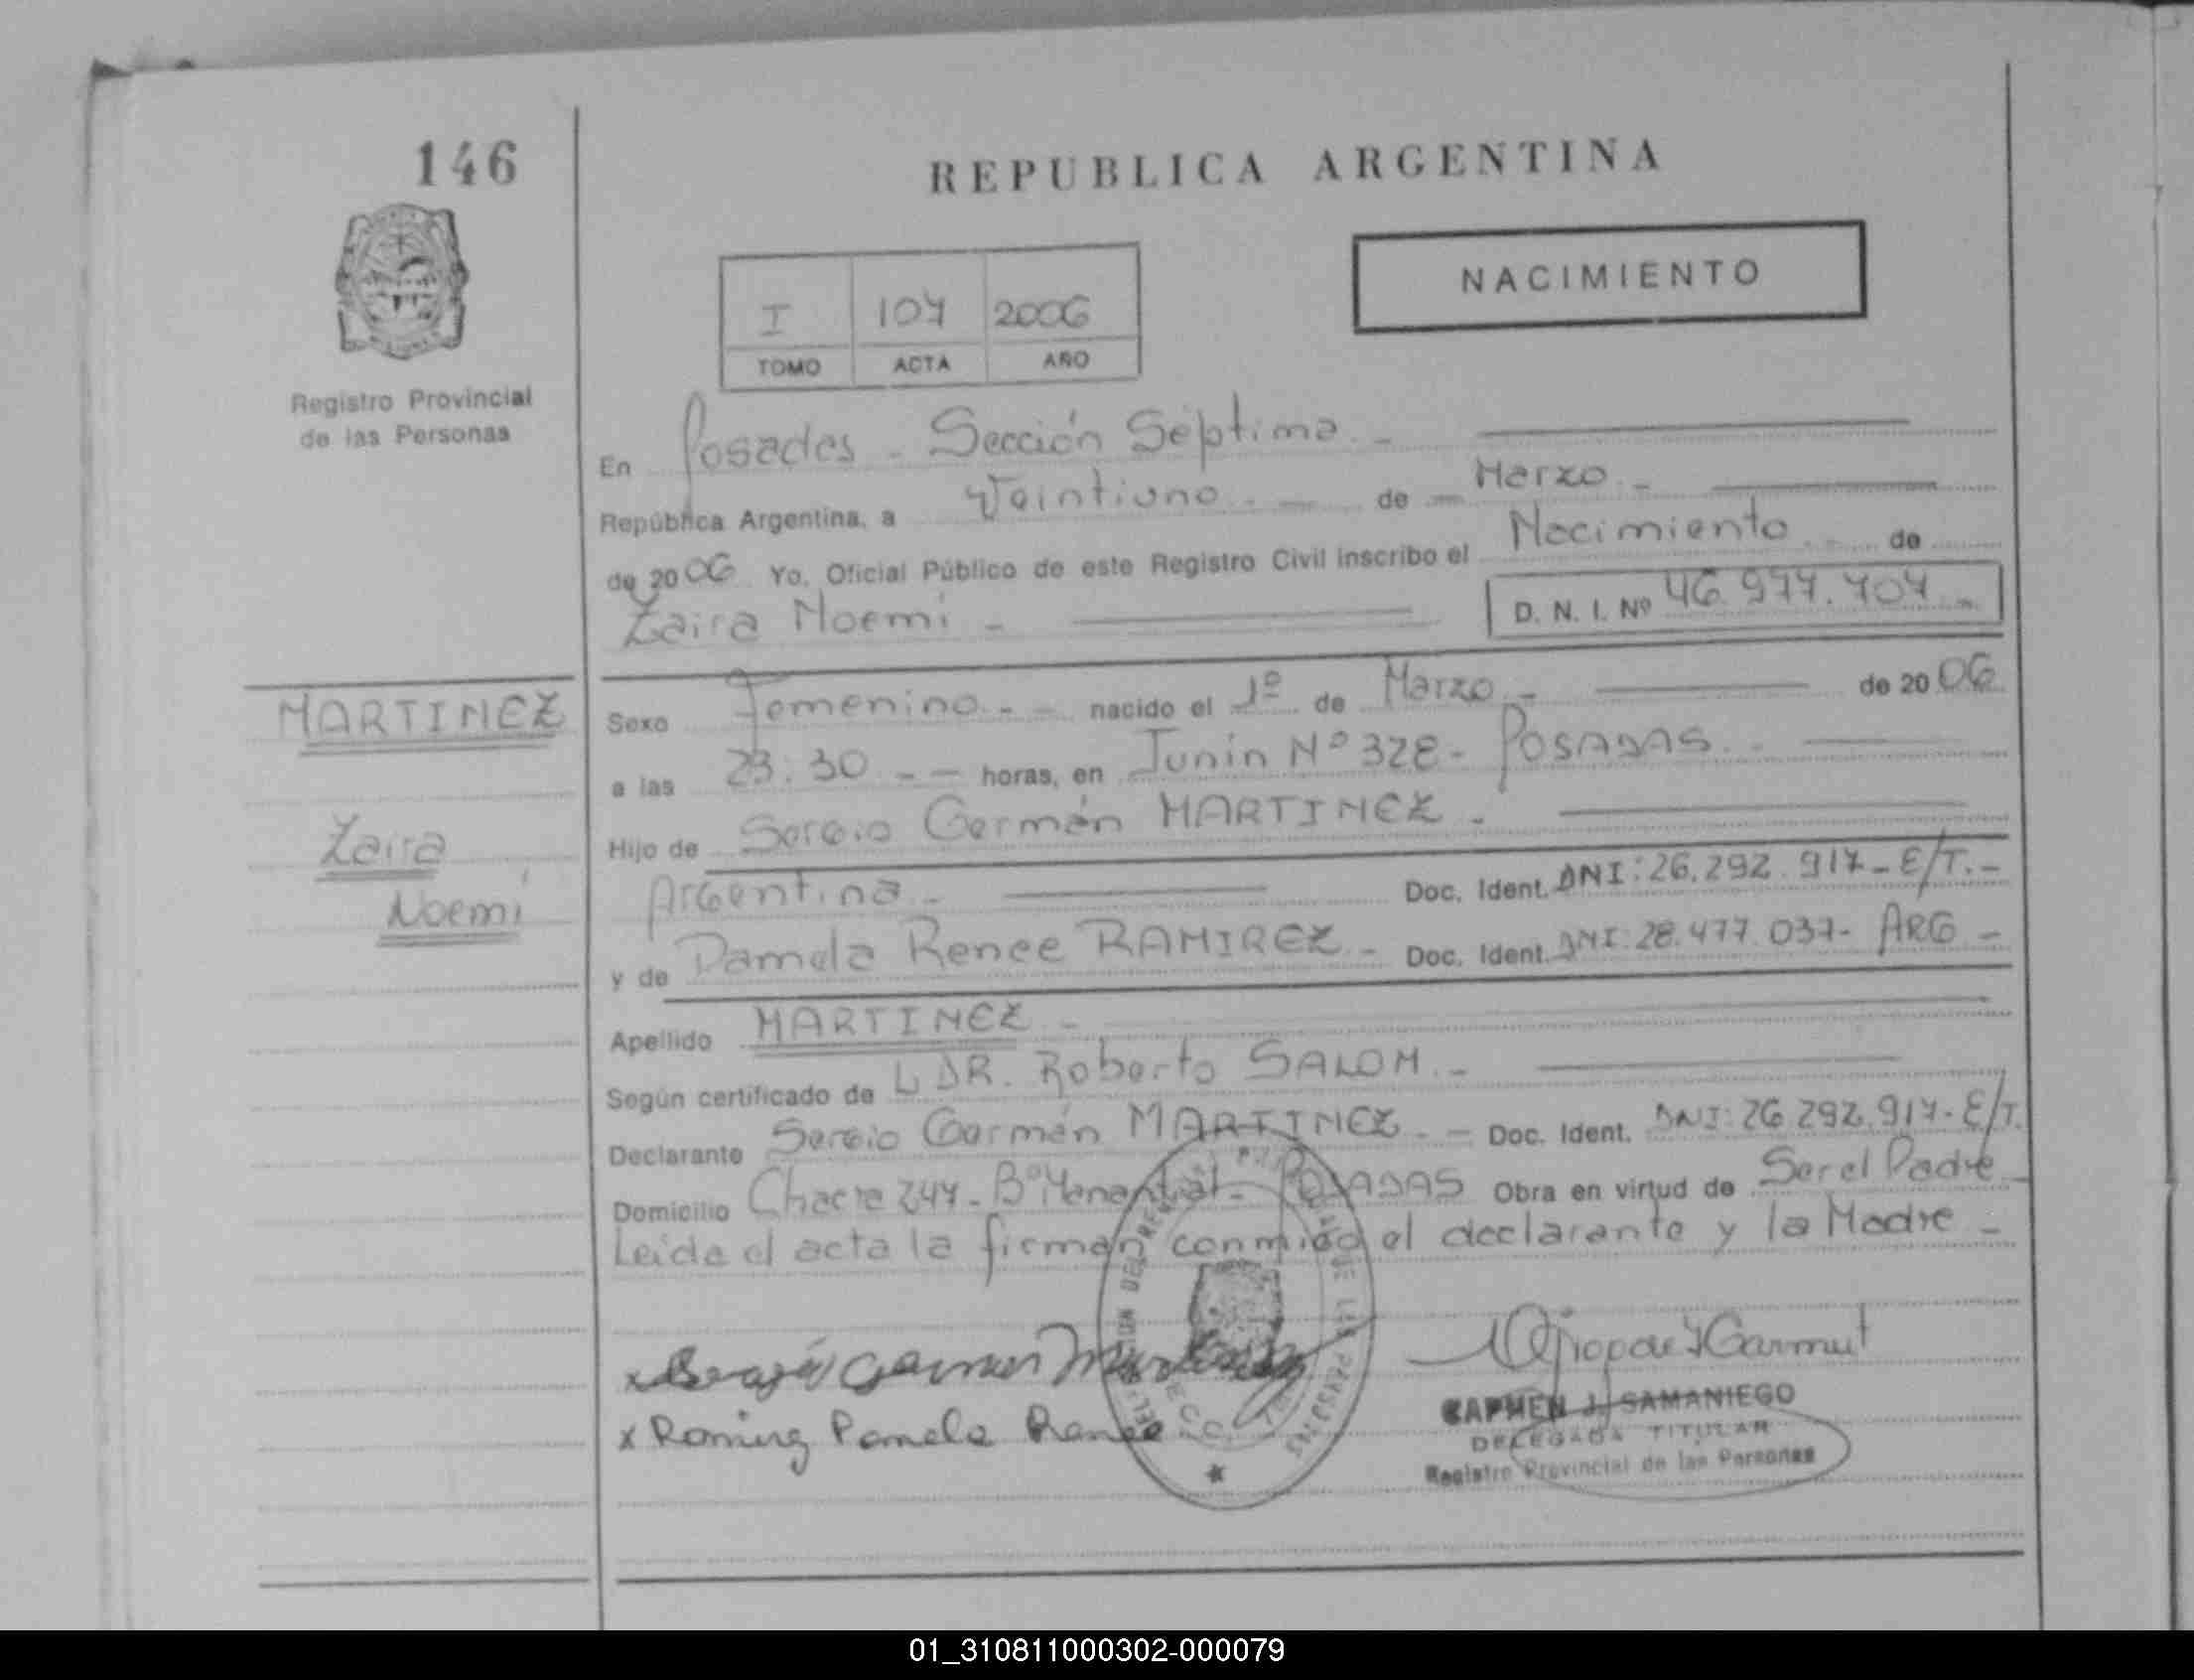 146
REPUBLICA ARGENTINA
NACIMIENTO
I 107 2006
TOMO ACTA AÑO
Registro Provincial
de las Personas
En Posadas - Sección Séptima -
República Argentina, a Veintiuno - de - Marzo -
de 2006 Yo, Oficial Público de este Registro Civil inscribo el Nacimiento de
Zaira Noemi - D. N. I. Nº 46.977.707 -
MARTINEZ
Zaira
Noemi
Sexo Femenino - - nacido el 1º de Marzo - de 2006
a las 23.30 - - horas, en Junín Nº 328 - POSADAS -
Hijo de Sergio Germán MARTINEZ -
Argentina - Doc. Ident. DNI: 26.292.917 - E/T. -
y de Pamela Renee RAMIREZ - Doc. Ident. DNI: 28.477.037 - ARG -
Apellido MARTINEZ -
Según certificado de L DR. Roberto SALOM -
Declarante Sergio Germán MARTINEZ - - Doc. Ident. DNI: 26.292.917 - E/T.
Domicilio Chacra 247 - Bº Manantial - POSADAS Obra en virtud de Ser el Padre -
Leída el acta la firman conmigo el declarante y la Madre -
x Ramirez Pamela Renee
CARMEN J. SAMANIEGO
DELEGADA TITULAR
Registro Provincial de las Personas
01_310811000302-000079